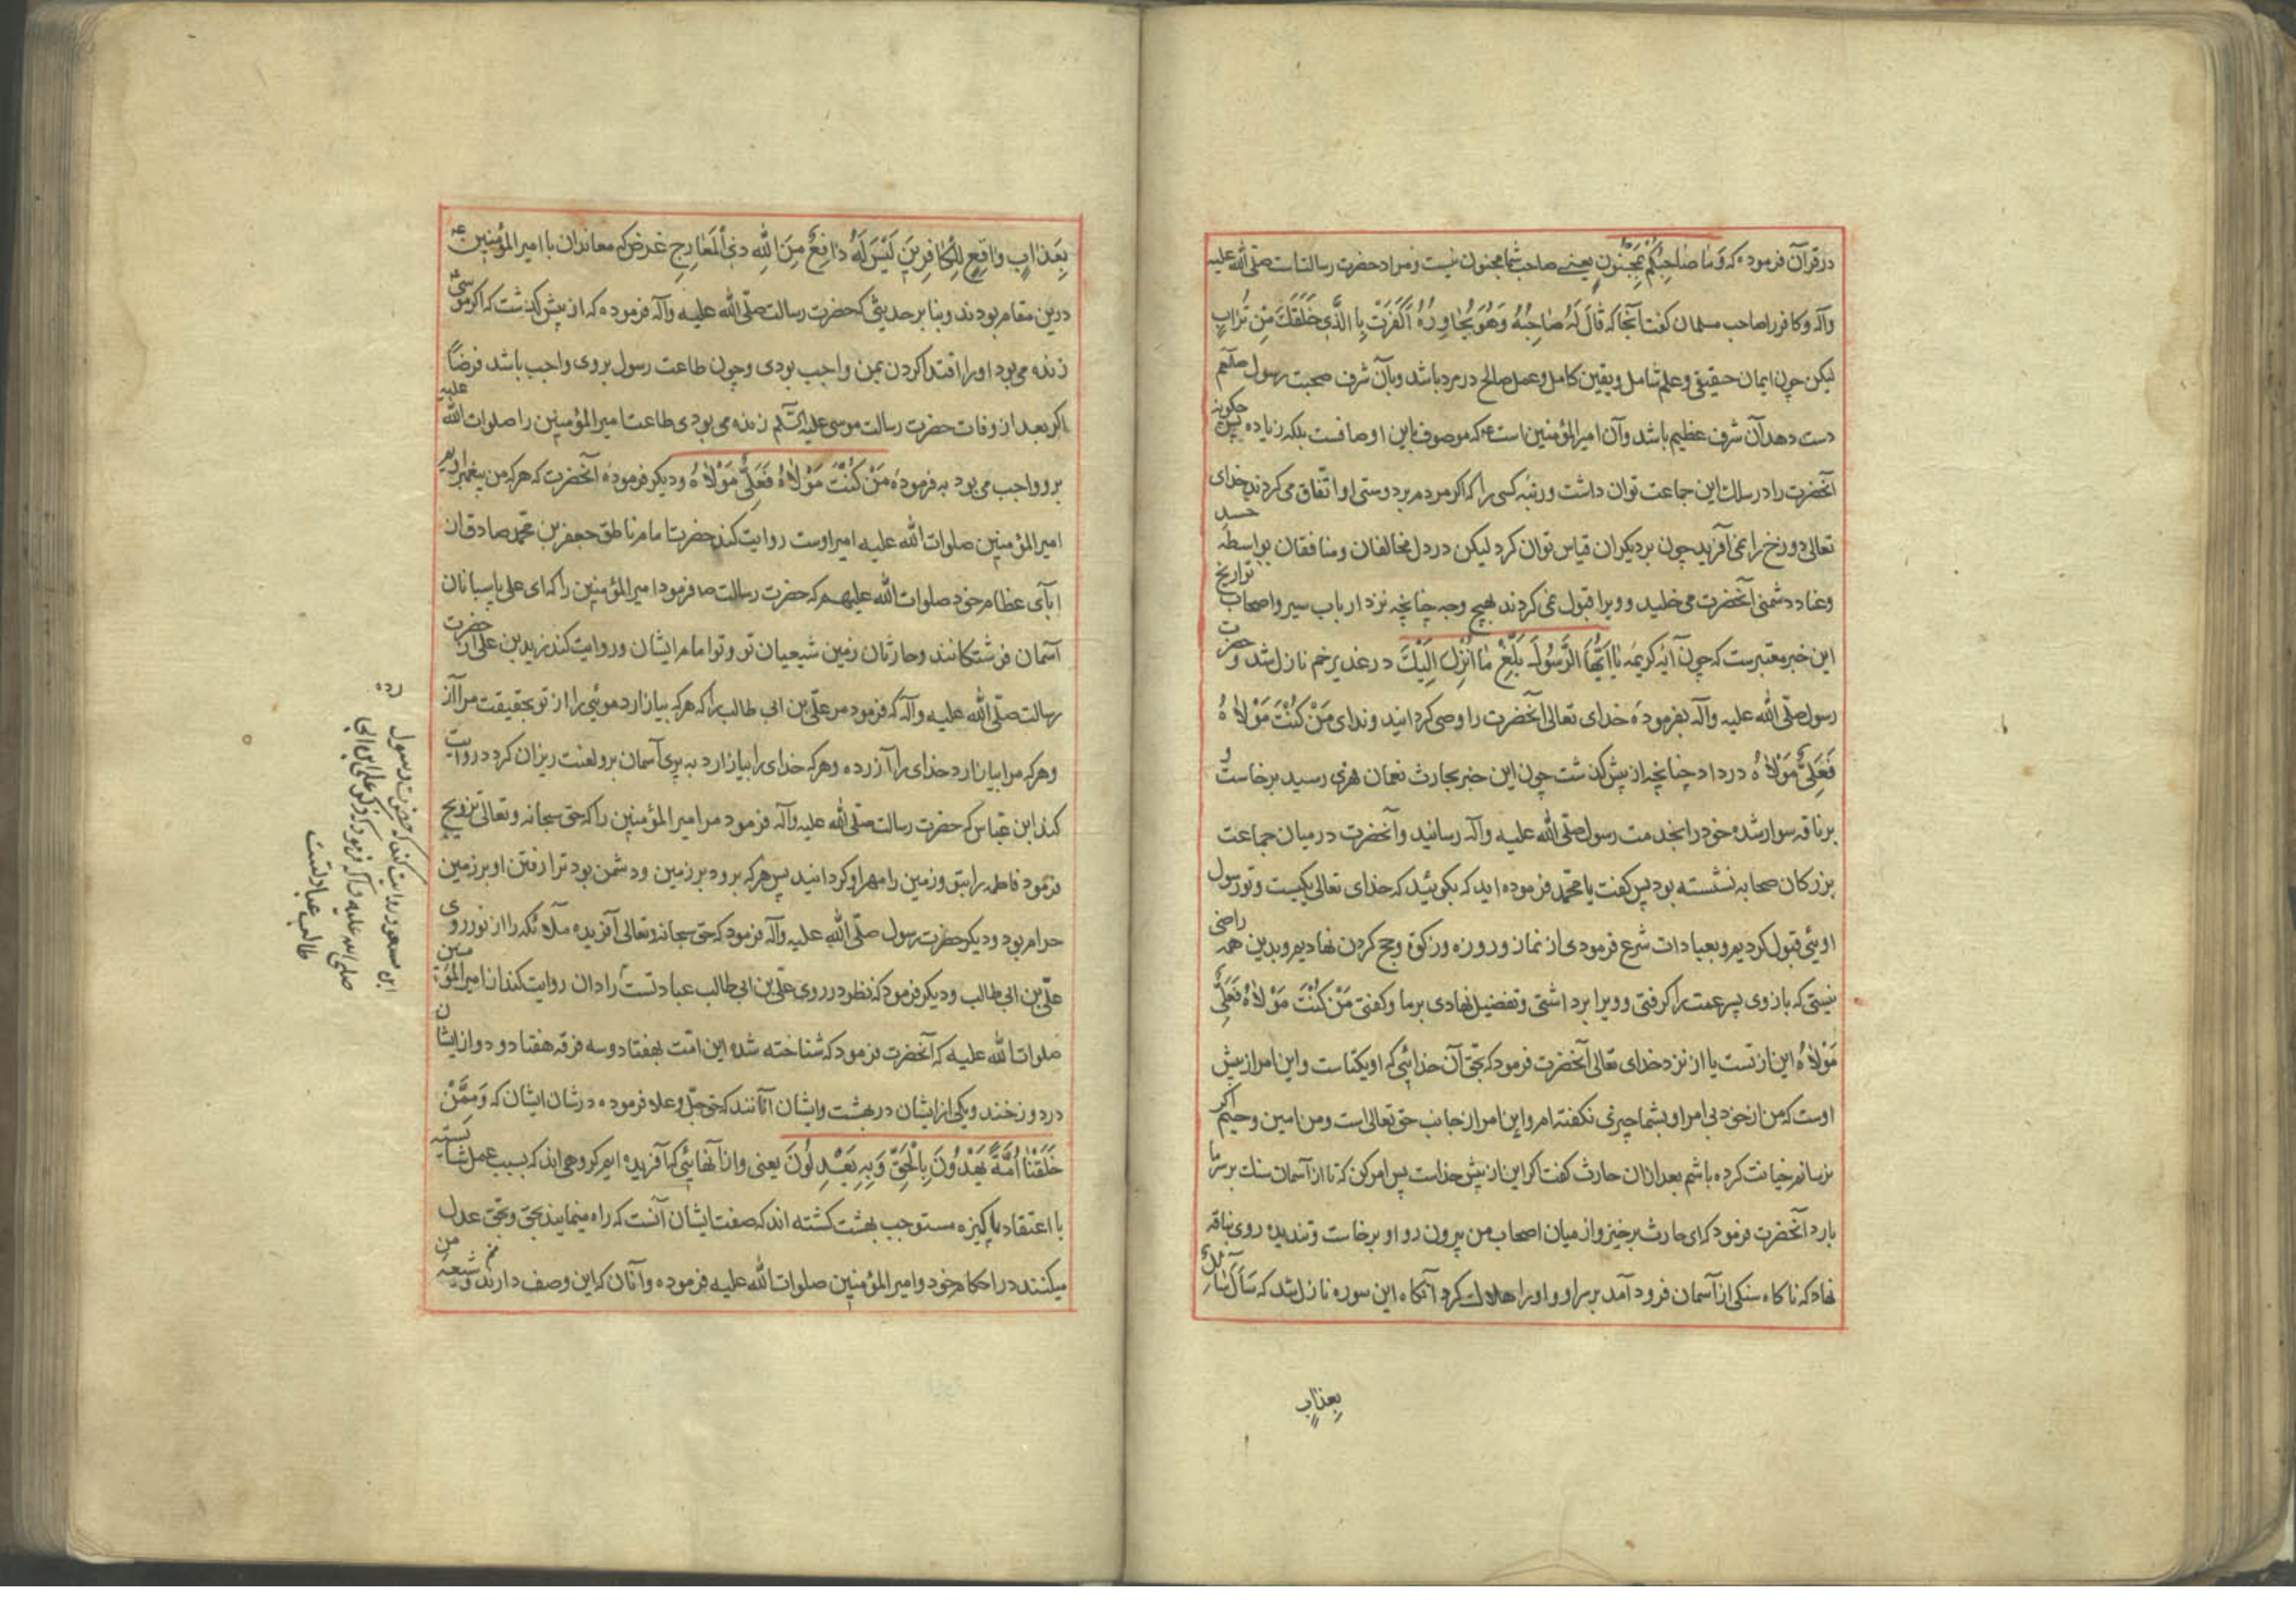 در قرآن فرموده که وَمَا صَاحِبُكُمْ بِمَجْنُونٍ یعنی صاحب شما مجنون نیست و مراد حضرت رسالتست صلّی الله علیه
وآله و کافر را صاحب مسلمان کفت آنجا که قَالَ لَهُ صَاحِبُهُ وَهُوَ يُحَاوِرُهُ أَكَفَرْتَ بِالَّذِي خَلَقَكَ مِنْ تُرَابٍ
لیکن چون ایمان حقیقی و علم شامل و یقین کامل و عمل صالح در مرد باشد و بآن شرف صحبت رسول صلعم
دست دهد آن شرف عظیم باشد و آن امیرالمؤمنین است ع که موصوف باین اوصافست بلکه زیاده پس چکونه
آنحضرت را در سلک این جماعت توان داشت و رتبه کسی را که اکر مردم بر دوستی او اتّفاق می کردند خدای
تعالی دوزخ را نمی آفرید چون بر دیکران قیاس توان کرد لیکن در دل مخالفان و منافقان بواسطه حسد
و عناد دشمنی آنحضرت می خلید و ویرا قبول نمی کردند بهیچ وجه چنانچه نزد ارباب سیر و اصحاب تواریخ
این خبر معتبرست که چون آیه کریمه يَا أَيُّهَا الرَّسُولُ بَلِّغْ مَا أُنْزِلَ إِلَيْكَ در غدیر خم نازل شد و حضرت
رسول صلّی الله علیه وآله بفرموده خدای تعالی آنحضرت را وصی کردانید و ندای مَنْ كُنْتُ مَوْلَاهُ
فَعَلِيٌّ مَوْلَاهُ در داد چنانچه از پیش کذشت چون این خبر بحارث نعمان فهری رسید برخاست و
بر ناقه سوار شده خود را بخدمت رسول صلّی الله علیه وآله رسانید و آنحضرت در میان جماعت
بزرکان صحابه نشسته بود پس کفت یا محمّد فرموده اید که بکوئید که خدای تعالی یکیست و تو رسول
اوئی قبول کردیم و بعبادات شرع فرمودی از نماز و روزه و زکوة و حج کردن نهادیم و بدین همه راضی
نیستی که بازوی پسر عمت را کرفتی و ویرا برداشتی و تفضیل نهادی بر ما و کفتی مَنْ كُنْتُ مَوْلَاهُ فَعَلِيٌّ
مَوْلَاهُ این از تست یا از نزد خدای تعالی آنحضرت فرمود که بحق آن خدائی که او یکتاست و این امر از پیش
اوست که من از خود بی امر او بشما چیزی نکفته ام و این امر از جانب حق تعالی است و من امین وحیم اکر
نرسانم خیانت کرده باشم بعد از ان حارث کفت اکر این از پیش خداست پس امر کن که تا از آسمان سنک بر سر ما
بارد آنحضرت فرمود که ای حارث برخیز و از میان اصحاب من بیرون رو او برخاست و تند روی بناقه
نهاد که ناکاه سنکی از آسمان فرود آمد بر سر او و او را هلاک کرد آنکاه این سوره نازل شد که سَأَلَ سَائِلٌ
بعذاب
بِعَذَابٍ وَاقِعٍ لِلْكَافِرِينَ لَيْسَ لَهُ دَافِعٌ مِنَ اللَّهِ ذِي الْمَعَارِجِ غرض که معاندان با امیرالمؤمنین ع
درین مقام بودند و بنا بر حدیثی که حضرت رسالت صلّی الله علیه وآله فرموده که از پیش کذشت که اکر موسی
زنده می بود او را اقتدا کردن بمن واجب بودی و چون طاعت رسول بروی واجب باشد فرضاً
اکر بعد از وفات حضرت رسالت موسی علیه السّلم زنده می بودی طاعت امیرالمؤمنین را صلوات الله علیه
برو واجب می بود به فرموده مَنْ كُنْتُ مَوْلَاهُ فَعَلِيٌّ مَوْلَاهُ و دیکر فرموده آنحضرت که هر که من پیغمبر اویم
امیرالمؤمنین صلوات الله علیه امیر اوست روایت کند حضرت امام ناطق جعفر بن محمّد صادق از
ابآی عظام خود صلوات الله علیهم که حضرت رسالت ص فرمود امیرالمؤمنین را که ای علی پاسبانان
آسمان فرشتکانند و حارثان زمین شیعیان تو و تو امام ایشان و روایت کند زید بن علی از حضرت
رسالت صلّی الله علیه وآله که فرمود مر علیّ بن ابی طالب را که هر که بیازارد موئی را از تو بحقیقت مرا آزرد
و هر که مرا بیازارد خدای را آزرده و هر که خدای را بیازارد به پری آسمان برو لعنت ریزان کرد د روایت
کند ابن عبّاس که حضرت رسالت صلّی الله علیه وآله فرمود مر امیرالمؤمنین را که حق سبحانه و تعالی تزویج
فرمود فاطمه را بتو و زمین را مهر او کردانید پس هر که برود بر زمین و دشمن بود ترا رفتن او بر زمین
حرام بود و دیکر حضرت رسول صلّی الله علیه وآله فرمود که حق سبحانه و تعالی آفریده ملآئکه را از نور روی
علیّ بن ابی طالب و دیکر فرمود که نظر در روی علیّ بن ابی طالب عبادتست زادان روایت کند از امیرالمؤمنین
صلوات الله علیه که آنحضرت فرمود که شناخته شده این امّت بهفتاد و سه فرقه هفتاد و دو از ایشان
در دوزخند و یکی از ایشان در بهشت و ایشان آنانند که حق جلّ و علا فرموده در شان ایشان که وَمِمَّنْ
خَلَقْنَا أُمَّةٌ يَهْدُونَ بِالْحَقِّ وَبِهِ يَعْدِلُونَ یعنی و از آنهائی که آفریده ایم کروهی اند که بسبب عمل شایسته
با اعتقاد پاکیزه مستوجب بهشت کشته اند که صفت ایشان آنست که راه مینمایند بحق و بحق عدل
میکنند در احکام خود و امیرالمؤمنین صلوات الله علیه فرموده و آنان که این وصف دارند شیعه من
ابن مسعود روایت کند که حضرت رسول
صلی الله علیه وآله فرمود که ذکر علی ابن ابی
طالب عبادتست